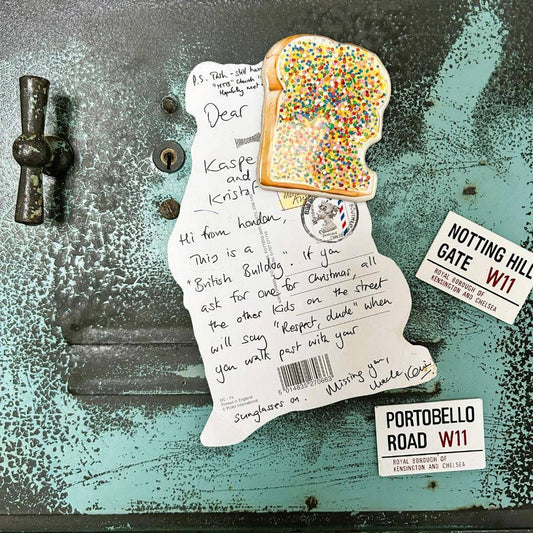 P.S. Tash - still
"MTTS" Church
Hopefully next
Dear
Kaspe
and
Kristof
Hi from London,
This is a
"British Bulldog". If you
ask for one for Christmas, all
the other kids on the street
will say "Respect, dude" when
you walk past with your
sunglasses on. Missing you,
Uncle Kevi
5 014835 270663
Printed in England
NOTTING HILL
GATE W11
ROYAL BOROUGH OF
KENSINGTON AND CHELSEA
PORTOBELLO
ROAD W11
ROYAL BOROUGH OF
KENSINGTON AND CHELSEA